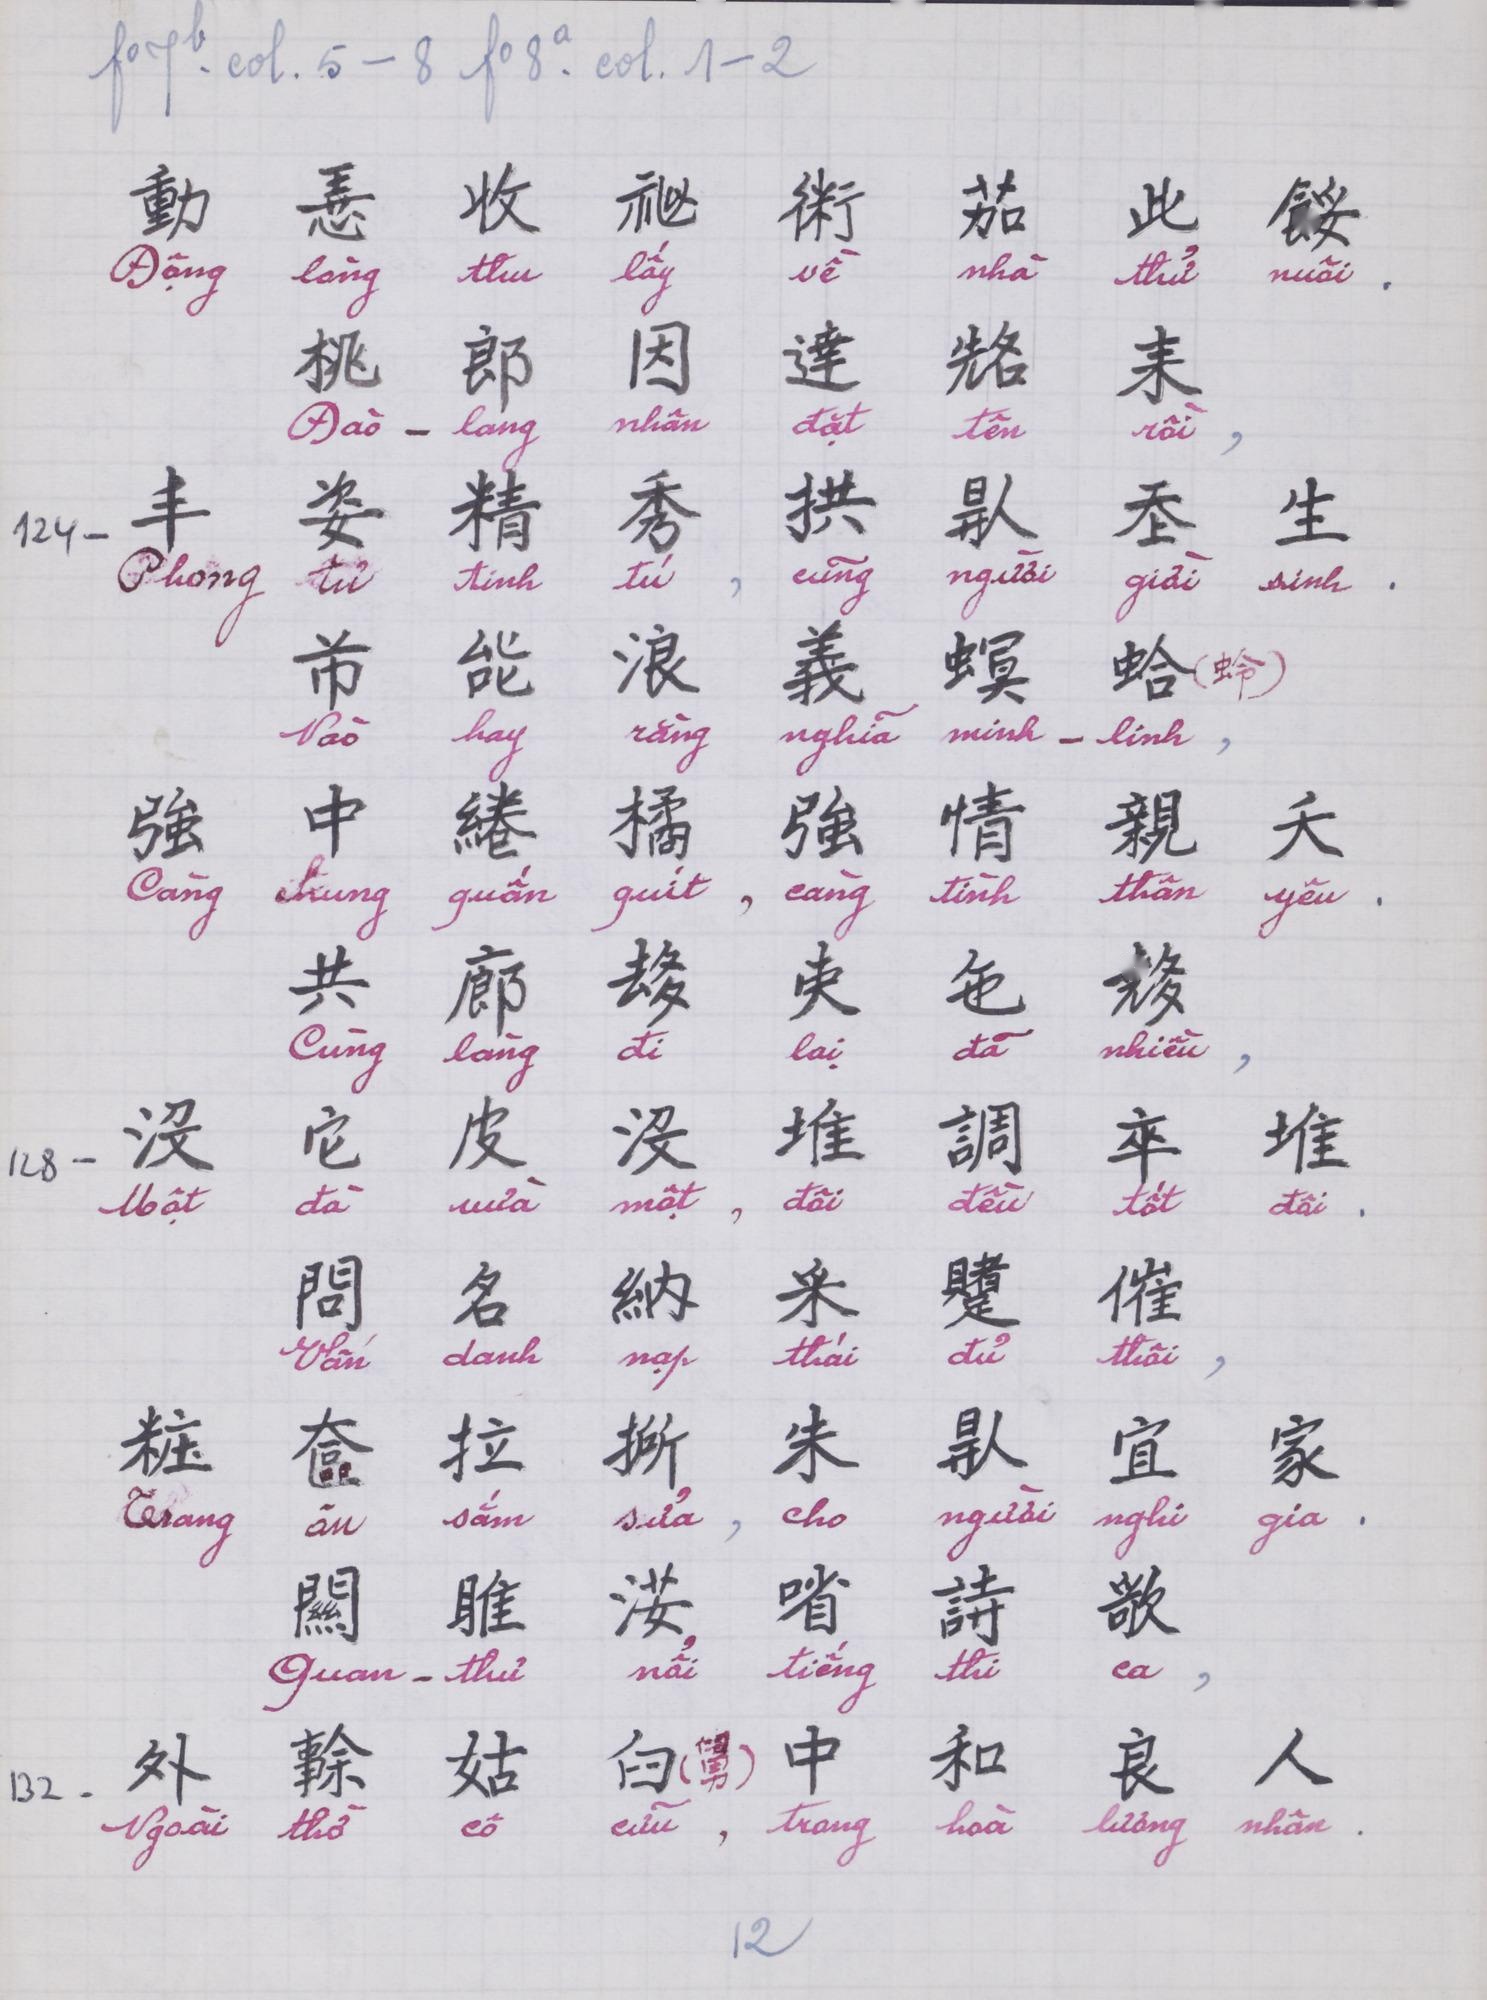 fº 7b. col. 5 – 8 fº 8a. col. 1 – 2
動 收 祕 術 茄 此 餒
Động lòng thu lấy về nhà thử nuôi .
桃 郎 因 達 耒
Đào – lang nhân đặt tên rồi ,
124 – 丰 姿 精 秀 拱 𠊛 𡗶 生
Phong tư tinh tú , cũng người giời sinh .
𠱾 能 浪 義 螟 蛤 (蛉)
Nào hay rằng nghĩa minh – linh ,
強 中 綣 橘 強 情 親 夭
Càng chung quấn quít , càng tình thân yêu .
共 廊 𠫾 吏 㐌
Cùng làng đi lại đã nhiều ,
128 – 沒 它 皮 沒 堆 調 卒 堆
Một đà vừa một , đôi đều tốt đôi .
問 名 納 采 催
Vấn danh nạp thái đủ thôi ,
粧 奩 拉 朱 𠊛 宜 家
Trang âu sắm sửa , cho người nghi gia .
關 雎 㳶 哨 詩 歌
Quan – thư nổi tiếng thi ca ,
132 – 外 姑 臼 (舅) 中 和 良 人
Ngoài thờ cô cữu , trong hoà lương nhân .
12